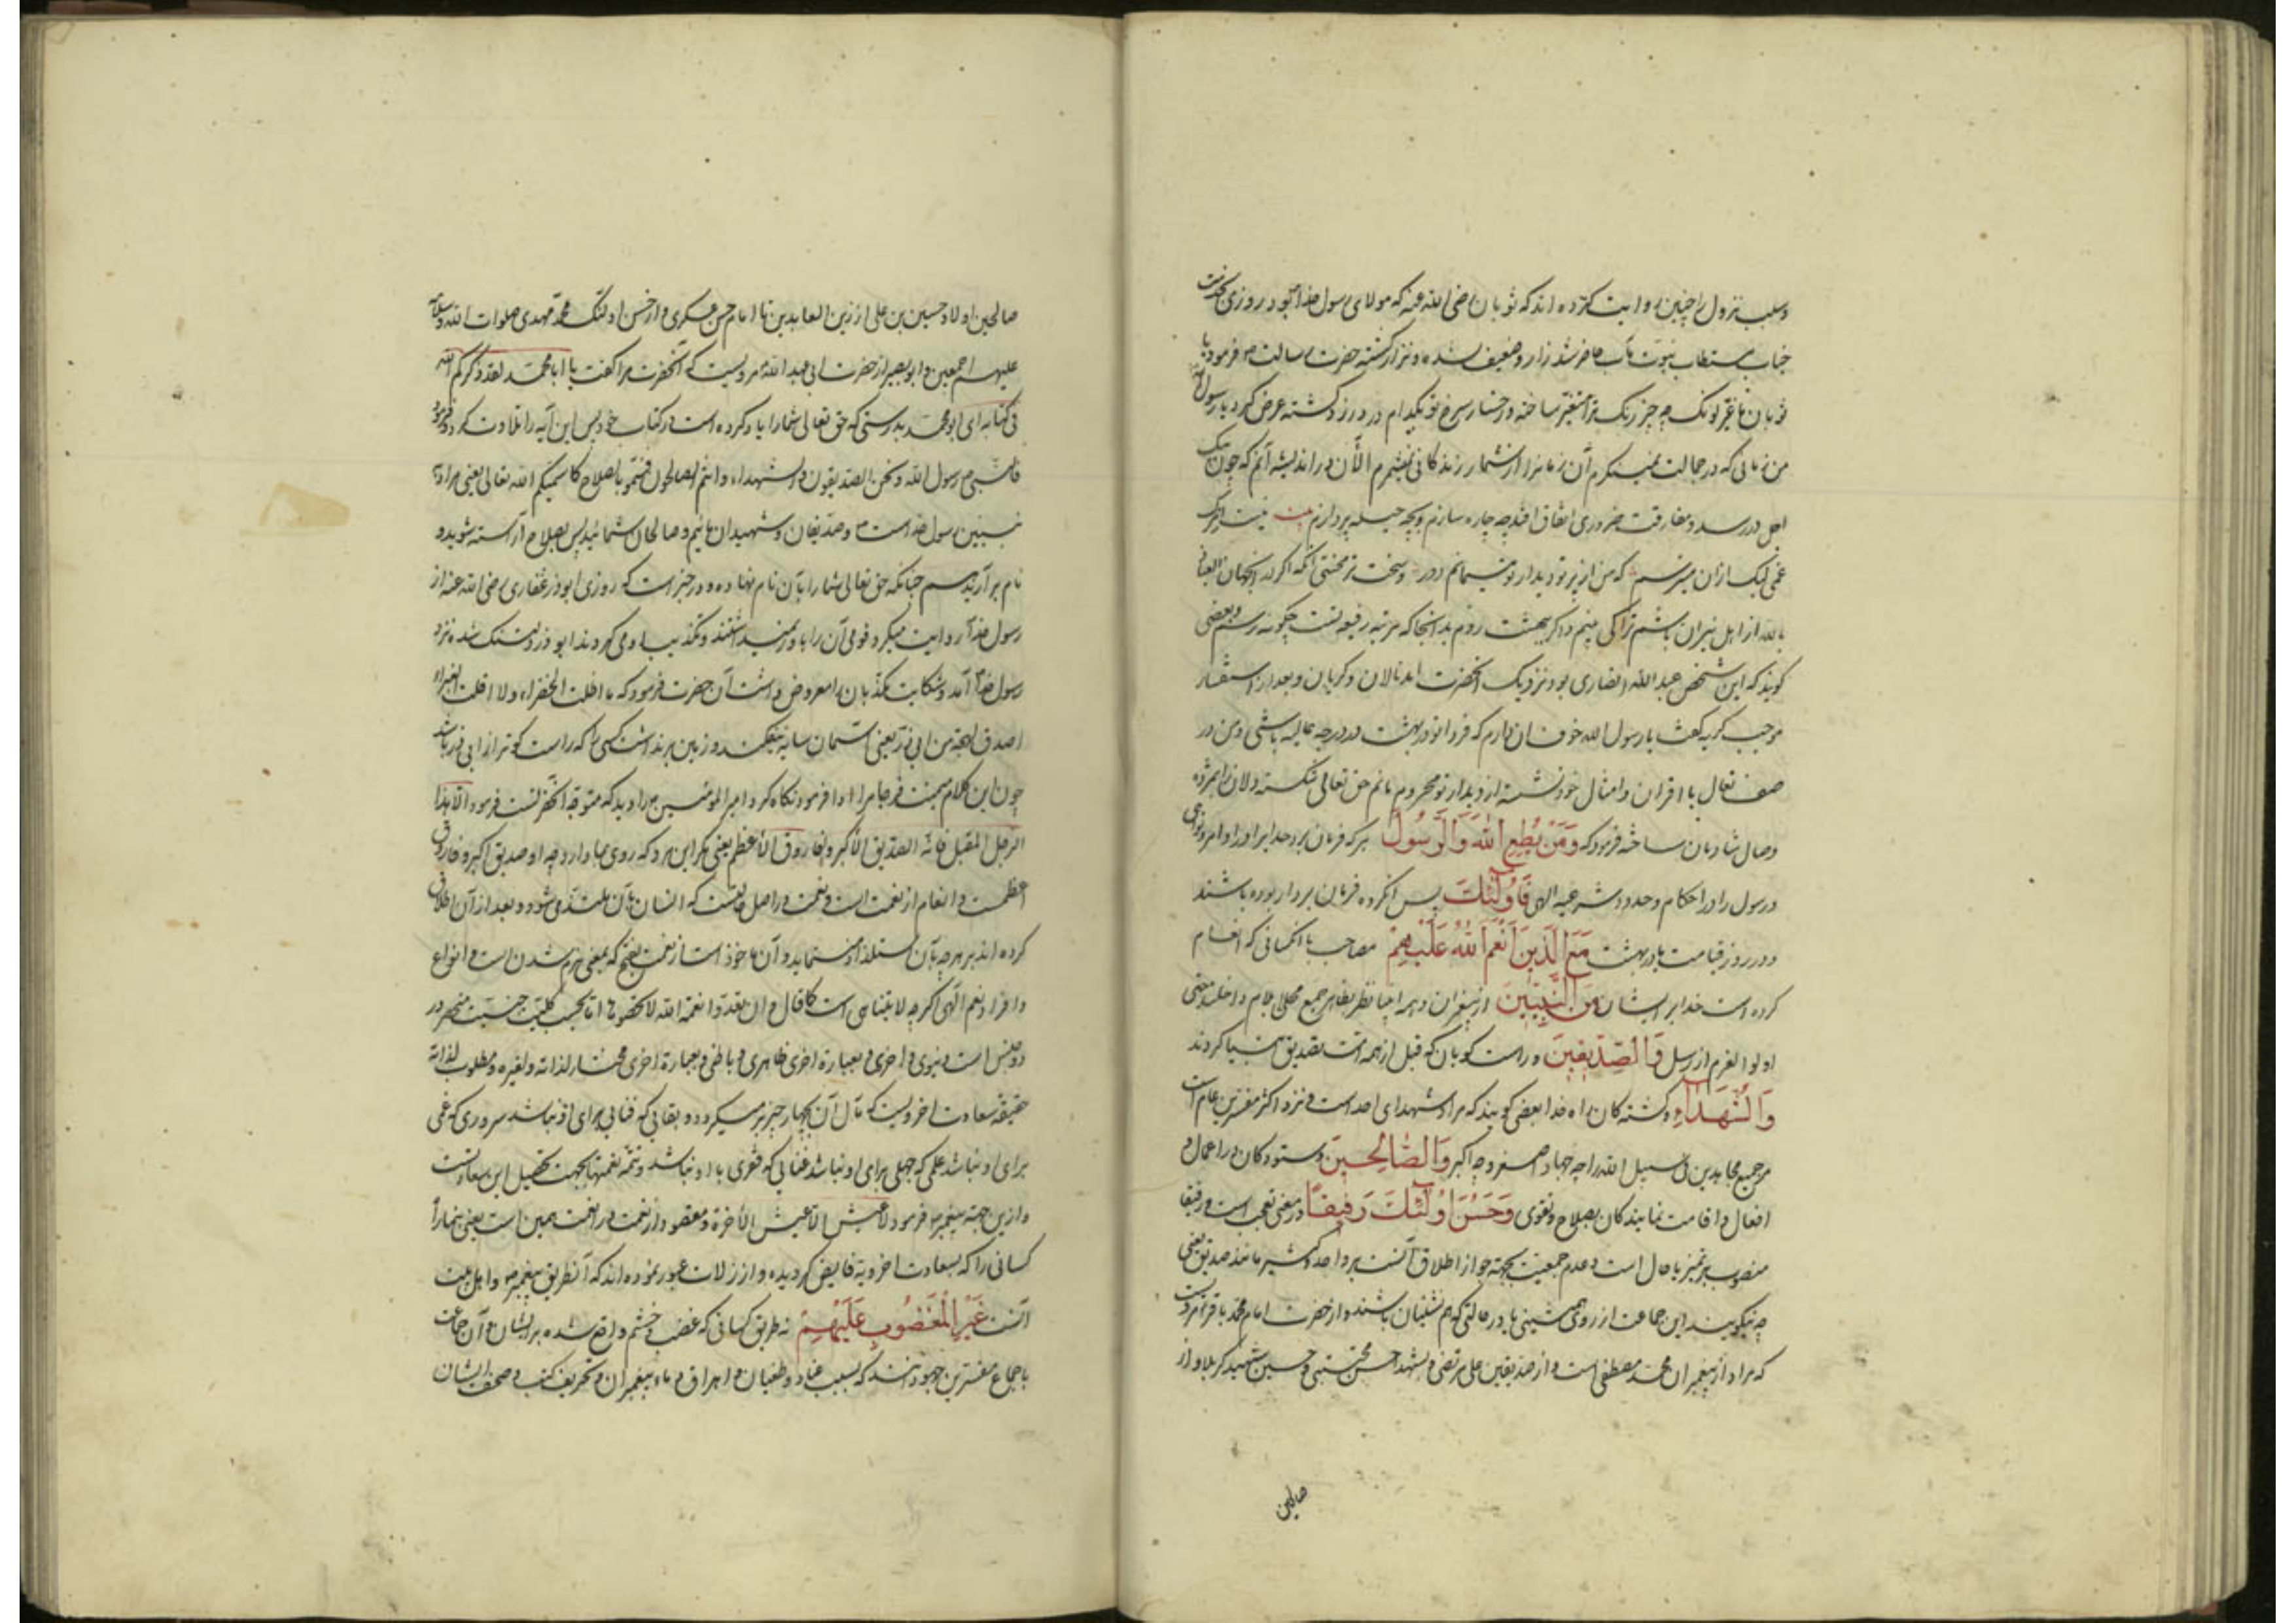 وسبب نزول را چنین روایت کرده‌اند که ثوبان رضی الله عنه که مولای رسول خدا بود روزی
جناب مستطاب نبوت مآب حاضر شد زار و ضعیف شده و نزار گشته حضرت رسالت فرمود یا
ثوبان ما غیر لونک چه چیز رنگ ترا متغیر ساخته و رخسار سرخ تو بکدام درد زرد گشته عرض کرد یا رسول الله
من زمانی که در جمالت نمینگرم آن زمانرا از شمار زندگانی نمیشمرم الآن در اندیشه آنم که چون
اجل در رسد و مفارقت ضروری اتفاق افتد چه چاره سازم و بچه حیله پردازم بیت نیست
غمی لیک ازان میترسم که من از پرتو دیدار تو میمانم دور و سخت تر محنتی آنکه اگر در آنجهان العیاذ
بالله از اهل نیران باشم ترا کی بینم و اگر ببهشت روم بدانجا که مرتبه رفیعه تست چگونه رسم و بعضی
گویند که این شخص عبد الله انصاری بود نزدیک آنحضرت آمد نالان و گریان و بعد از استفسار
موجب گریه گفت یا رسول الله خوف آن دارم که فردا تو در بهشت در درجه عالیه باشی و من در
صف نعال با اقران و امثال خود نشسته از دیدار تو محروم مانم حق تعالی شکسته دلان را بمژده
وصال شادمان ساخته فرمود که وَمَنْ يُطِعِ اللّٰهَ وَالرَّسُولَ هر که فرمان برد خدایرا در اوامر و نواهی
و رسول را در احکام و حدود شرعیه الهی فَاُولٰئِكَ پس آنگروه فرمان بردار بوده باشند
و در روز قیامت یا در بهشت مَعَ الَّذِينَ اَنْعَمَ اللّٰهُ عَلَيْهِمْ مصاحب با آنکسانی که انعام
کرده است خدا بر ایشان مِنَ النَّبِيِّينَ از پیغمبران
اولوا العزم از رسل وَالصِّدِّيقِينَ و راست گویان که قبل از همه امت تصدیق انبیا کردند
وَالشُّهَدَاءِ و کشته‌گان راه خدا بعضی گویند که مراد شهدای احد است و نزد اکثر مفسرین عام است
مر جمیع مجاهدین فی سبیل الله را چه جهاد اصغر و چه اکبر وَالصَّالِحِينَ و ستودگان در اعمال و
افعال و اقامت نمایندگان بصلاح و تقوی وَحَسُنَ اُولٰئِكَ رَفِيقًا در معنی تعجب است و رفیقا
منصوب بر تمیز یا حال است و عدم جمعیت بجهة جواز اطلاق آنست بر واحد و کثیر مانند صدیق یعنی
چه نیکویند این جماعت از روی همنشینی یا در حالتی که هم نشینان باشند و از حضرت امام محمد باقر مرویست
که مراد از پیغمبران محمد مصطفی است و از صدیقین علی مرتضی و شهدا حسن مجتبی و حسین شهید کربلا و از
صالحین
صالحین اولاد حسین بن علی از زین العابدین تا امام حسن عسکری و از حسن اولئک محمد مهدی صلوات الله وسلامه
علیهم اجمعین و ابو بصیر از حضرت ابی عبد الله مرویست که آنحضرت مرا گفت یا ابا محمد لقد ذکرکم الله
فی کتابه ای ابو محمد بدرستی که حق تعالی شما را یاد کرده است در کتاب خود پس این آیه را تلاوت کرد و فرمود
فالنبی رسول الله و نحن الصدیقون و الشهداء و انتم الصالحون فتسموا بالصلاح کما سمیکم الله تعالی یعنی مراد از
نبیین رسول خداست و صدیقان و شهیدان مائیم و صالحان شمائید پس بصلاح آراسته شوید و
نام برآرید هم چنانکه حق تعالی شما را بآن نام نهاده و در خبر است که روزی ابوذر غفاری رضی الله عنه از
رسول خدا روایت میکرد قومی آن را باور نمیداشتند و تکذیب او می کردند ابوذر دلتنگ شده نزد
رسول خدا آمد و شکایت مکذبان را معروض داشت آن حضرت فرمود که ما اظلت الخضراء ولا اقلت الغبراء
اصدق لهجة من ابی ذر یعنی آسمان سایه نیفکند و زمین برنداشت کسی را که راست گوتر از ابی ذر باشد
چون این کلام نگاه کرد امیر المؤمنین را دید که متوجه آنحضرتست فرمود الا هذا
الرجل المقبل فانه الصدیق الاکبر والفاروق الاعظم یعنی مگر این مرد که روی بما دارد چه او صدیق اکبر و فاروق
اعظمست و انعام از نعمت است و نعمت در اصل حالتیست که انسان بآن ملتذ می شود و بعد از آن اطلاق
کرده‌اند بر هر چه بآن استلذاذ نماید و آن ماخوذ است از نعمت بفتح که بمعنی نرم شدن است و انواع
و افراد نعم الهی اگر چه لا یتناهی است کما قال و ان تعدوا نعمة الله لا تحصوها اما بحسب کلیت جنسیت منحصر در
دو جنس است دنیوی و اخروی و بعبارة اخری ظاهری و باطنی و بعبارة اخری مختار لذاته و لغیره و مطلوب لذاته
حقیقة سعادت اخرویست که مآل آن بچهار چیز برمیگردد بقایی که فنایی برای او نباشد سروری که غمی
برای او نباشد علمی که جهلی برای او نباشد غنایی که فقری با او نباشد و تتمه نعمتها بجهت تحصیل این سعادتست
و ازین جهة پیغمبر فرمود لا عیش الا عیش الآخرة و مقصود از نعمت در انعمت همین است یعنی بنما راه
کسانی را که بسعادت اخرویة فایض گردیده و از زلات عبور نموده‌اند که آنطریق پیغمبر و اهل بیت
آنست غَيْرِ الْمَغْضُوبِ عَلَيْهِمْ نه طریق کسانی که غضب و خشم واقع شده بر ایشان و آن جماعت
باجماع مفسرین جهودانند که بسبب عناد و طغیان و اهراق دماء پیغمبران و تحریف کتب و صحف ایشان